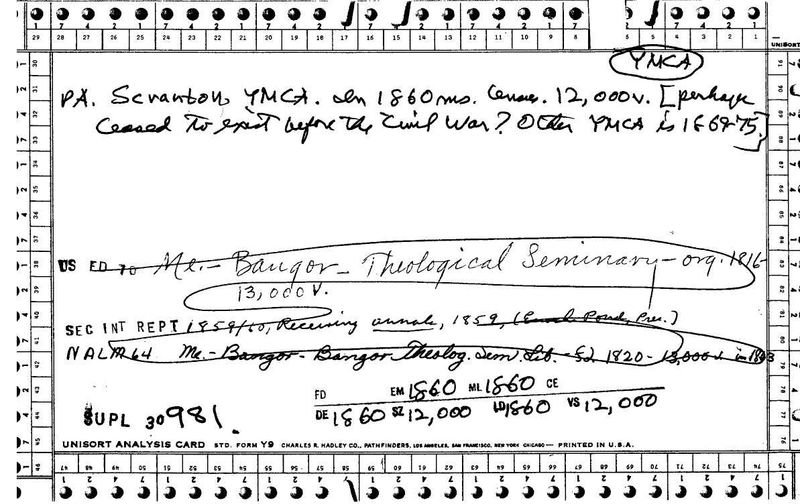 YMCA
PA. Scranton YMCA. In 1860 ms. Census. 12,000v. [perhaps
ceased to exist before the Civil War? Other YMCA is 1868-75]
US ED 70 Me.- Bangor- Theological Seminary- org. 1816-
13,000 V.
SEC INT REPT 1859/60, Receiving annals, 1859, (Enoch Pond, Pres.)
NALR64 Me.- Bangor- Bangor Theolog. Sem. Lib. - fd. 1820- 13,000 v. in 1863
FD EM 1860 ML 1860 CE
DE 1860 SZ 12,000 LD 1860 VS 12,000
SUPL 30981.
UNISORT ANALYSIS CARD STD. FORM Y9 CHARLES R. HADLEY CO., PATHFINDERS, LOS ANGELES, SAN FRANCISCO, NEW YORK CHICAGO — PRINTED IN U.S.A.